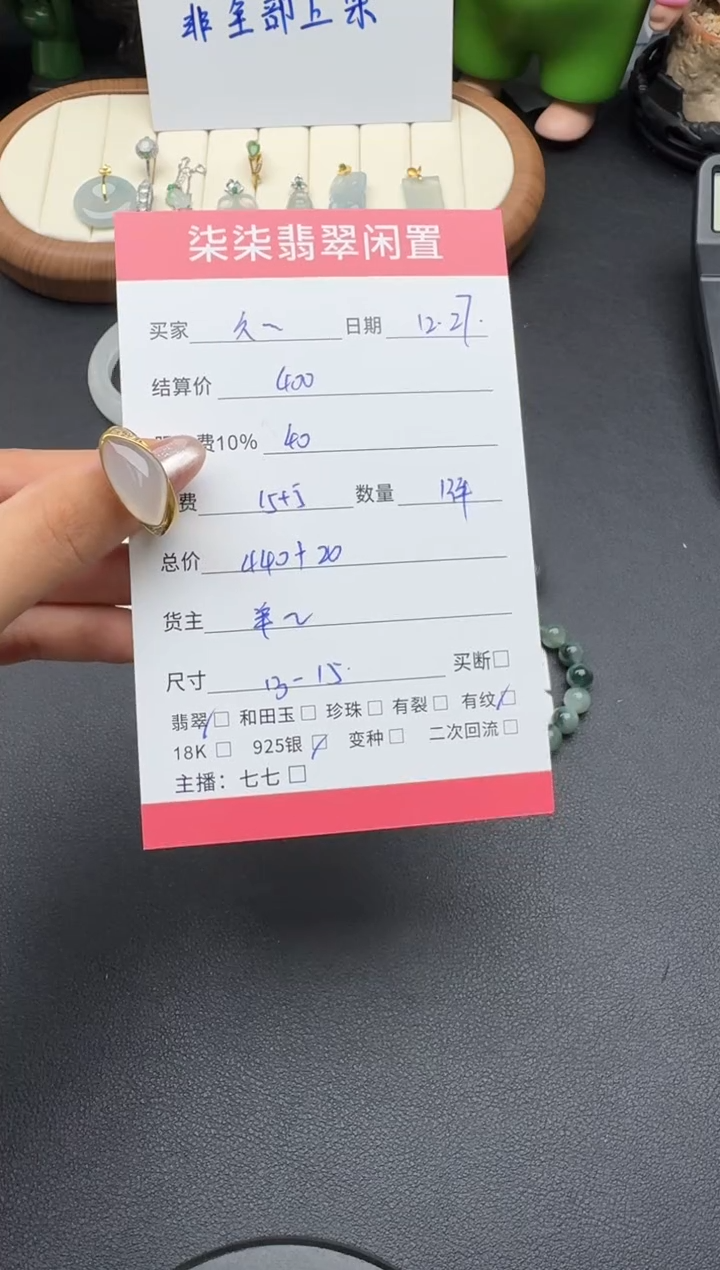 非全部上架
柒柒翡翠闲置
买家 久~ 日期 12.27.
结算价 400
费10% 40
费 15+5 数量 1
总价 440+20
货主
尺寸 13-15. 买断□
翡翠□ 和田玉□ 珍珠□ 有裂□ 有纹□
18K□ 925银□ 变种□ 二次回流□
主播：七七□